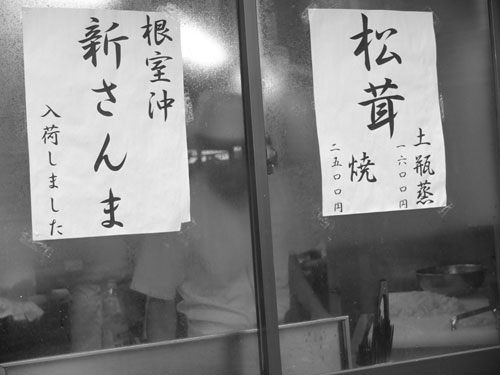 根室沖
新さんま
入荷しました
松茸
土瓶蒸
一六〇〇円
焼
二五〇〇円